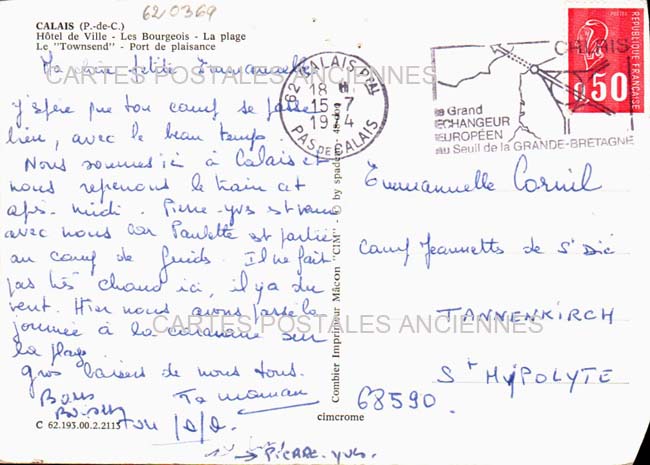 62 0369
CALAIS (P.-de-C.)
Hôtel de Ville - Les Bourgeois - La plage
Le "Townsend" - Port de plaisance
Ma petite Emmanuelle
J'espère que ton camp se passe
bien, avec le beau temps.
Nous sommes ici à Calais et
nous reprenons le train cet
après-midi. Pierre-Yves est venu
avec nous car Paulette est partie
au camp de guides. Il ne fait
pas très chaud ici, il y a du
vent. Hier nous avons passé la
journée à la caravane sur
la plage.
gros baisers de nous tous.
Bons
Baisers
Ta maman
ton papa
PIERRE-YVES.
C 62.193.00.2.2113
Combier Imprimeur Mâcon "CIM" - © by spadem
cimcrome
62 CALAIS PPAL
18 H
15-7
1974
PAS DE CALAIS
CALAIS
Grand
ECHANGEUR
EUROPÉEN
au Seuil de la GRANDE-BRETAGNE
0.50
REPUBLIQUE FRANÇAISE
Emmanuelle Cornil
Camp Jeannettes de St Dié
TANNENKIRCH
St HYPOLYTE
68590.
CARTES POSTALES ANCIENNES
CARTES POSTALES ANCIENNES